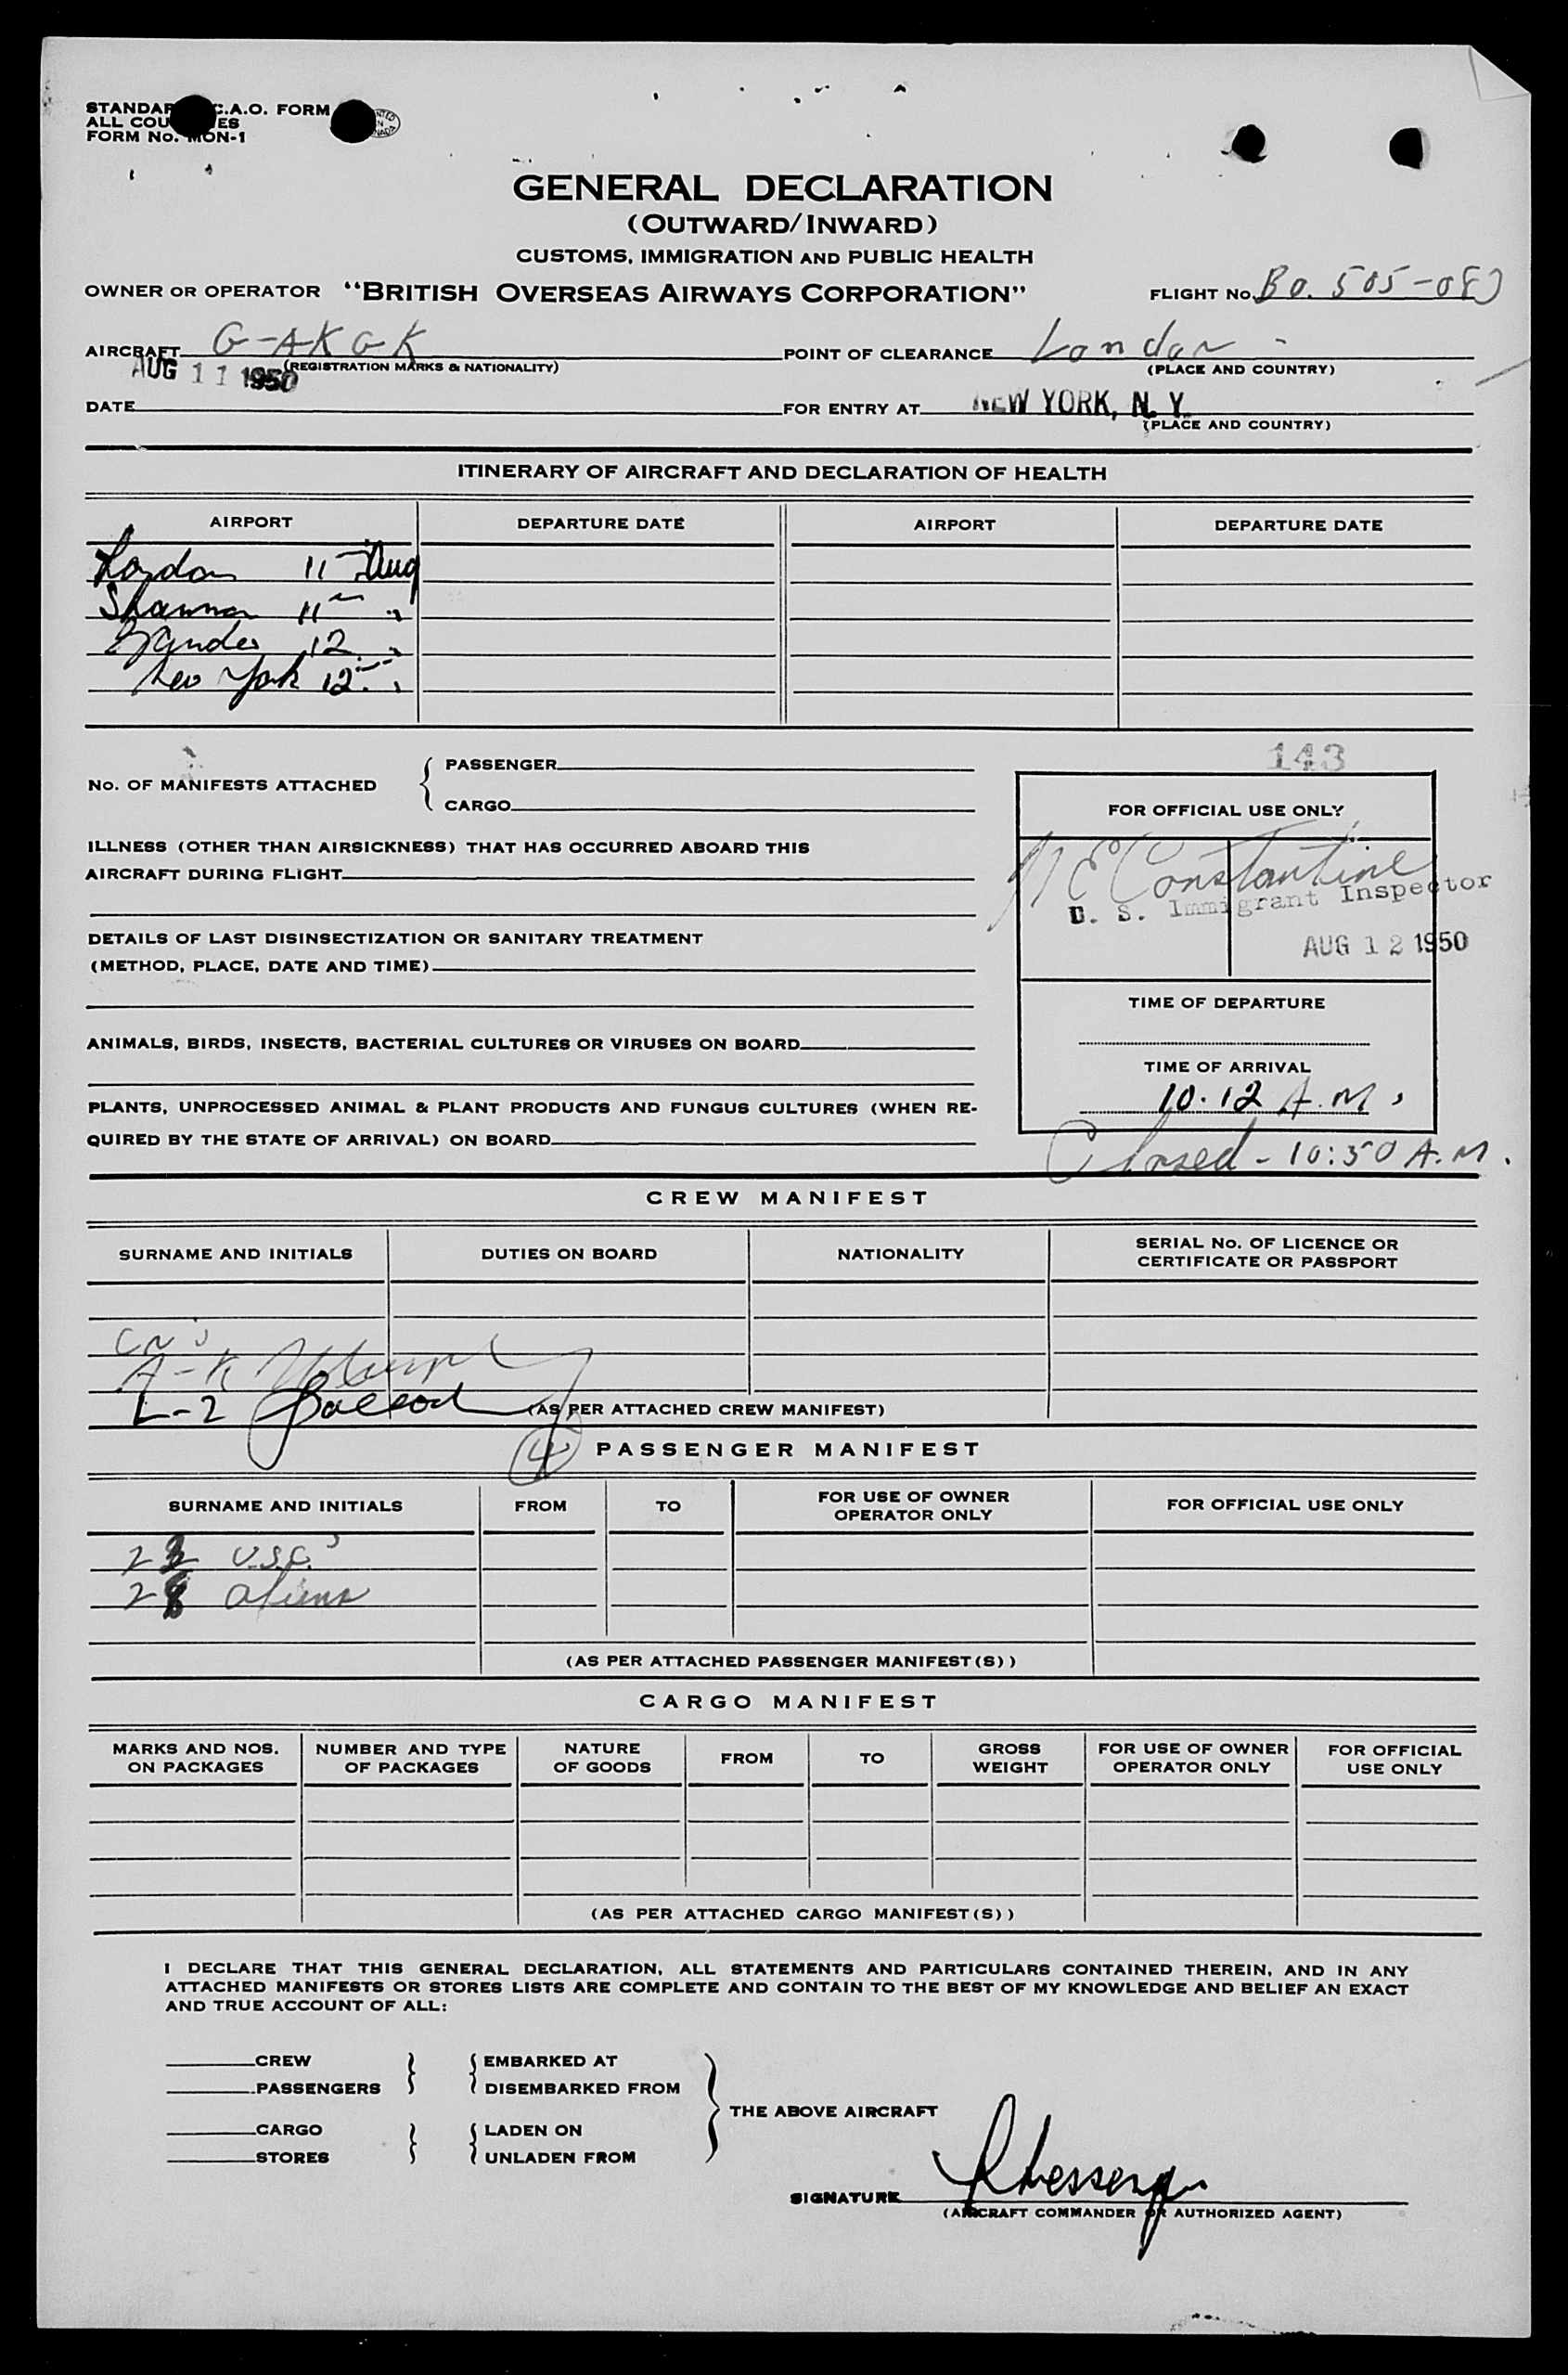 STANDAR C.A.O. FORM
ALL COU ES
FORM No. MON-1
GENERAL DECLARATION
(OUTWARD/INWARD)
CUSTOMS, IMMIGRATION AND PUBLIC HEALTH
OWNER OR OPERATOR "BRITISH OVERSEAS AIRWAYS CORPORATION" FLIGHT No. BO. 505-083
AIRCRAFT G-AKGK POINT OF CLEARANCE London
(REGISTRATION MARKS & NATIONALITY) (PLACE AND COUNTRY)
AUG 11 1950
DATE FOR ENTRY AT NEW YORK, N. Y.
(PLACE AND COUNTRY)
ITINERARY OF AIRCRAFT AND DECLARATION OF HEALTH
AIRPORT DEPARTURE DATE AIRPORT DEPARTURE DATE
London 11 Aug
Shannon 11 "
Gander 12 "
New York 12 "
143
No. OF MANIFESTS ATTACHED { PASSENGER
CARGO
FOR OFFICIAL USE ONLY
ILLNESS (OTHER THAN AIRSICKNESS) THAT HAS OCCURRED ABOARD THIS
AIRCRAFT DURING FLIGHT
Constantine
U. S. Immigrant Inspector
AUG 12 1950
DETAILS OF LAST DISINSECTIZATION OR SANITARY TREATMENT
(METHOD, PLACE, DATE AND TIME)
TIME OF DEPARTURE
ANIMALS, BIRDS, INSECTS, BACTERIAL CULTURES OR VIRUSES ON BOARD
TIME OF ARRIVAL
10.12 A.M.
PLANTS, UNPROCESSED ANIMAL & PLANT PRODUCTS AND FUNGUS CULTURES (WHEN RE-
QUIRED BY THE STATE OF ARRIVAL) ON BOARD
Closed - 10:50 A.M.
CREW MANIFEST
SURNAME AND INITIALS DUTIES ON BOARD NATIONALITY SERIAL No. OF LICENCE OR
CERTIFICATE OR PASSPORT
A-K
L-2
(AS PER ATTACHED CREW MANIFEST)
4
PASSENGER MANIFEST
SURNAME AND INITIALS FROM TO FOR USE OF OWNER
OPERATOR ONLY FOR OFFICIAL USE ONLY
U.S.C.s
aliens
(AS PER ATTACHED PASSENGER MANIFEST(S))
CARGO MANIFEST
MARKS AND NOS.
ON PACKAGES NUMBER AND TYPE
OF PACKAGES NATURE
OF GOODS FROM TO GROSS
WEIGHT FOR USE OF OWNER
OPERATOR ONLY FOR OFFICIAL
USE ONLY
(AS PER ATTACHED CARGO MANIFEST(S))
I DECLARE THAT THIS GENERAL DECLARATION, ALL STATEMENTS AND PARTICULARS CONTAINED THEREIN, AND IN ANY
ATTACHED MANIFESTS OR STORES LISTS ARE COMPLETE AND CONTAIN TO THE BEST OF MY KNOWLEDGE AND BELIEF AN EXACT
AND TRUE ACCOUNT OF ALL:
CREW EMBARKED AT
PASSENGERS DISEMBARKED FROM
THE ABOVE AIRCRAFT
CARGO LADEN ON
STORES UNLADEN FROM
SIGNATURE
(AIRCRAFT COMMANDER OR AUTHORIZED AGENT)